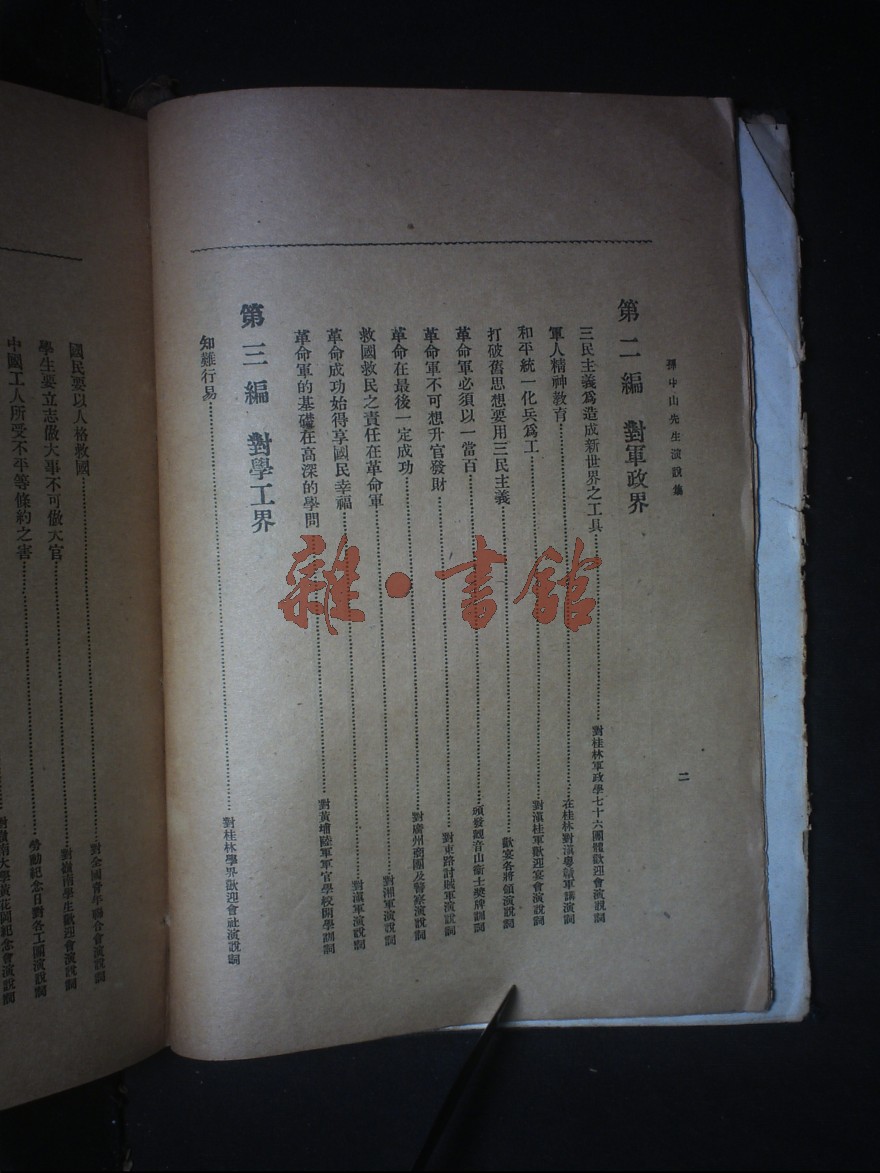 孫中山先生演說集
二
第二編 對軍政界
三民主義爲造成新世界之工具……對桂林軍政學七十六團體歡迎會演說詞
軍人精神教育……在桂林對滇粵贛軍講演詞
和平統一化兵爲工……對滇桂軍歡迎宴會演說詞
打破舊思想要用三民主義……歡宴各將領演說詞
革命軍必須以一當百……頒發觀音山衞士獎牌訓詞
革命軍不可想升官發財……對東路討賊軍演說詞
革命在最後一定成功……對廣州商團及警察演說詞
救國救民之責任在革命軍……對湘軍演說詞
革命成功始得享國民幸福……對滇軍演說詞
革命軍的基礎在高深的學問……對黃埔陸軍軍官學校開學訓詞
第三編 對學工界
知難行易……對桂林學界歡迎會社演說詞
國民要以人格救國……對全國青年聯合會演說詞
學生要立志做大事不可做大官……對嶺南學生歡迎會演說詞
中國工人所受不平等條約之害……勞動紀念日對各工團演說詞
對嶺南大學黃花岡紀念會演說詞
雜·書館